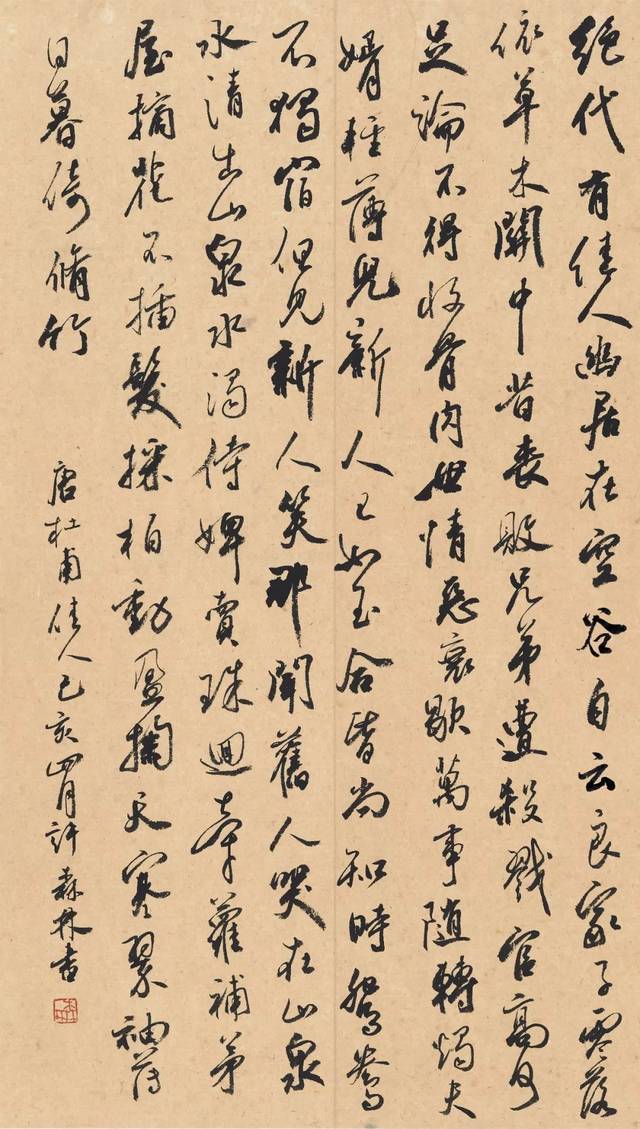 絕代有佳人幽居在空谷自云良家子零落
依草木關中昔喪敗兄弟遭殺戮官高何
足論不得收骨肉世情惡衰歇萬事隨轉燭夫
婿輕薄兒新人已如玉合昏尚知時鴛鴦
不獨宿但見新人笑那聞舊人哭在山泉
水清出山泉水濁侍婢賣珠迴牽蘿補茅
屋摘花不插髮採柏動盈掬天寒翠袖薄
日暮倚脩竹
唐杜甫佳人己亥四月許森林書